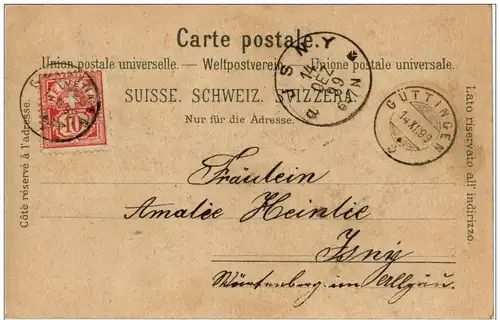 Carte postale.
Union postale universelle. — Weltpostverein. — Unione postale universale.
SUISSE. SCHWEIZ. SVIZZERA.
Nur für die Adresse.
Côté réservé à l'adresse.
Lato riservato all' indirizzo.
HELVETIA
10
ISNY
14
DEZ
99
GÜTTINGEN
14.XII.99
Fräulein
Amalie Heinlie
Isny
Württemberg im Allgäu.